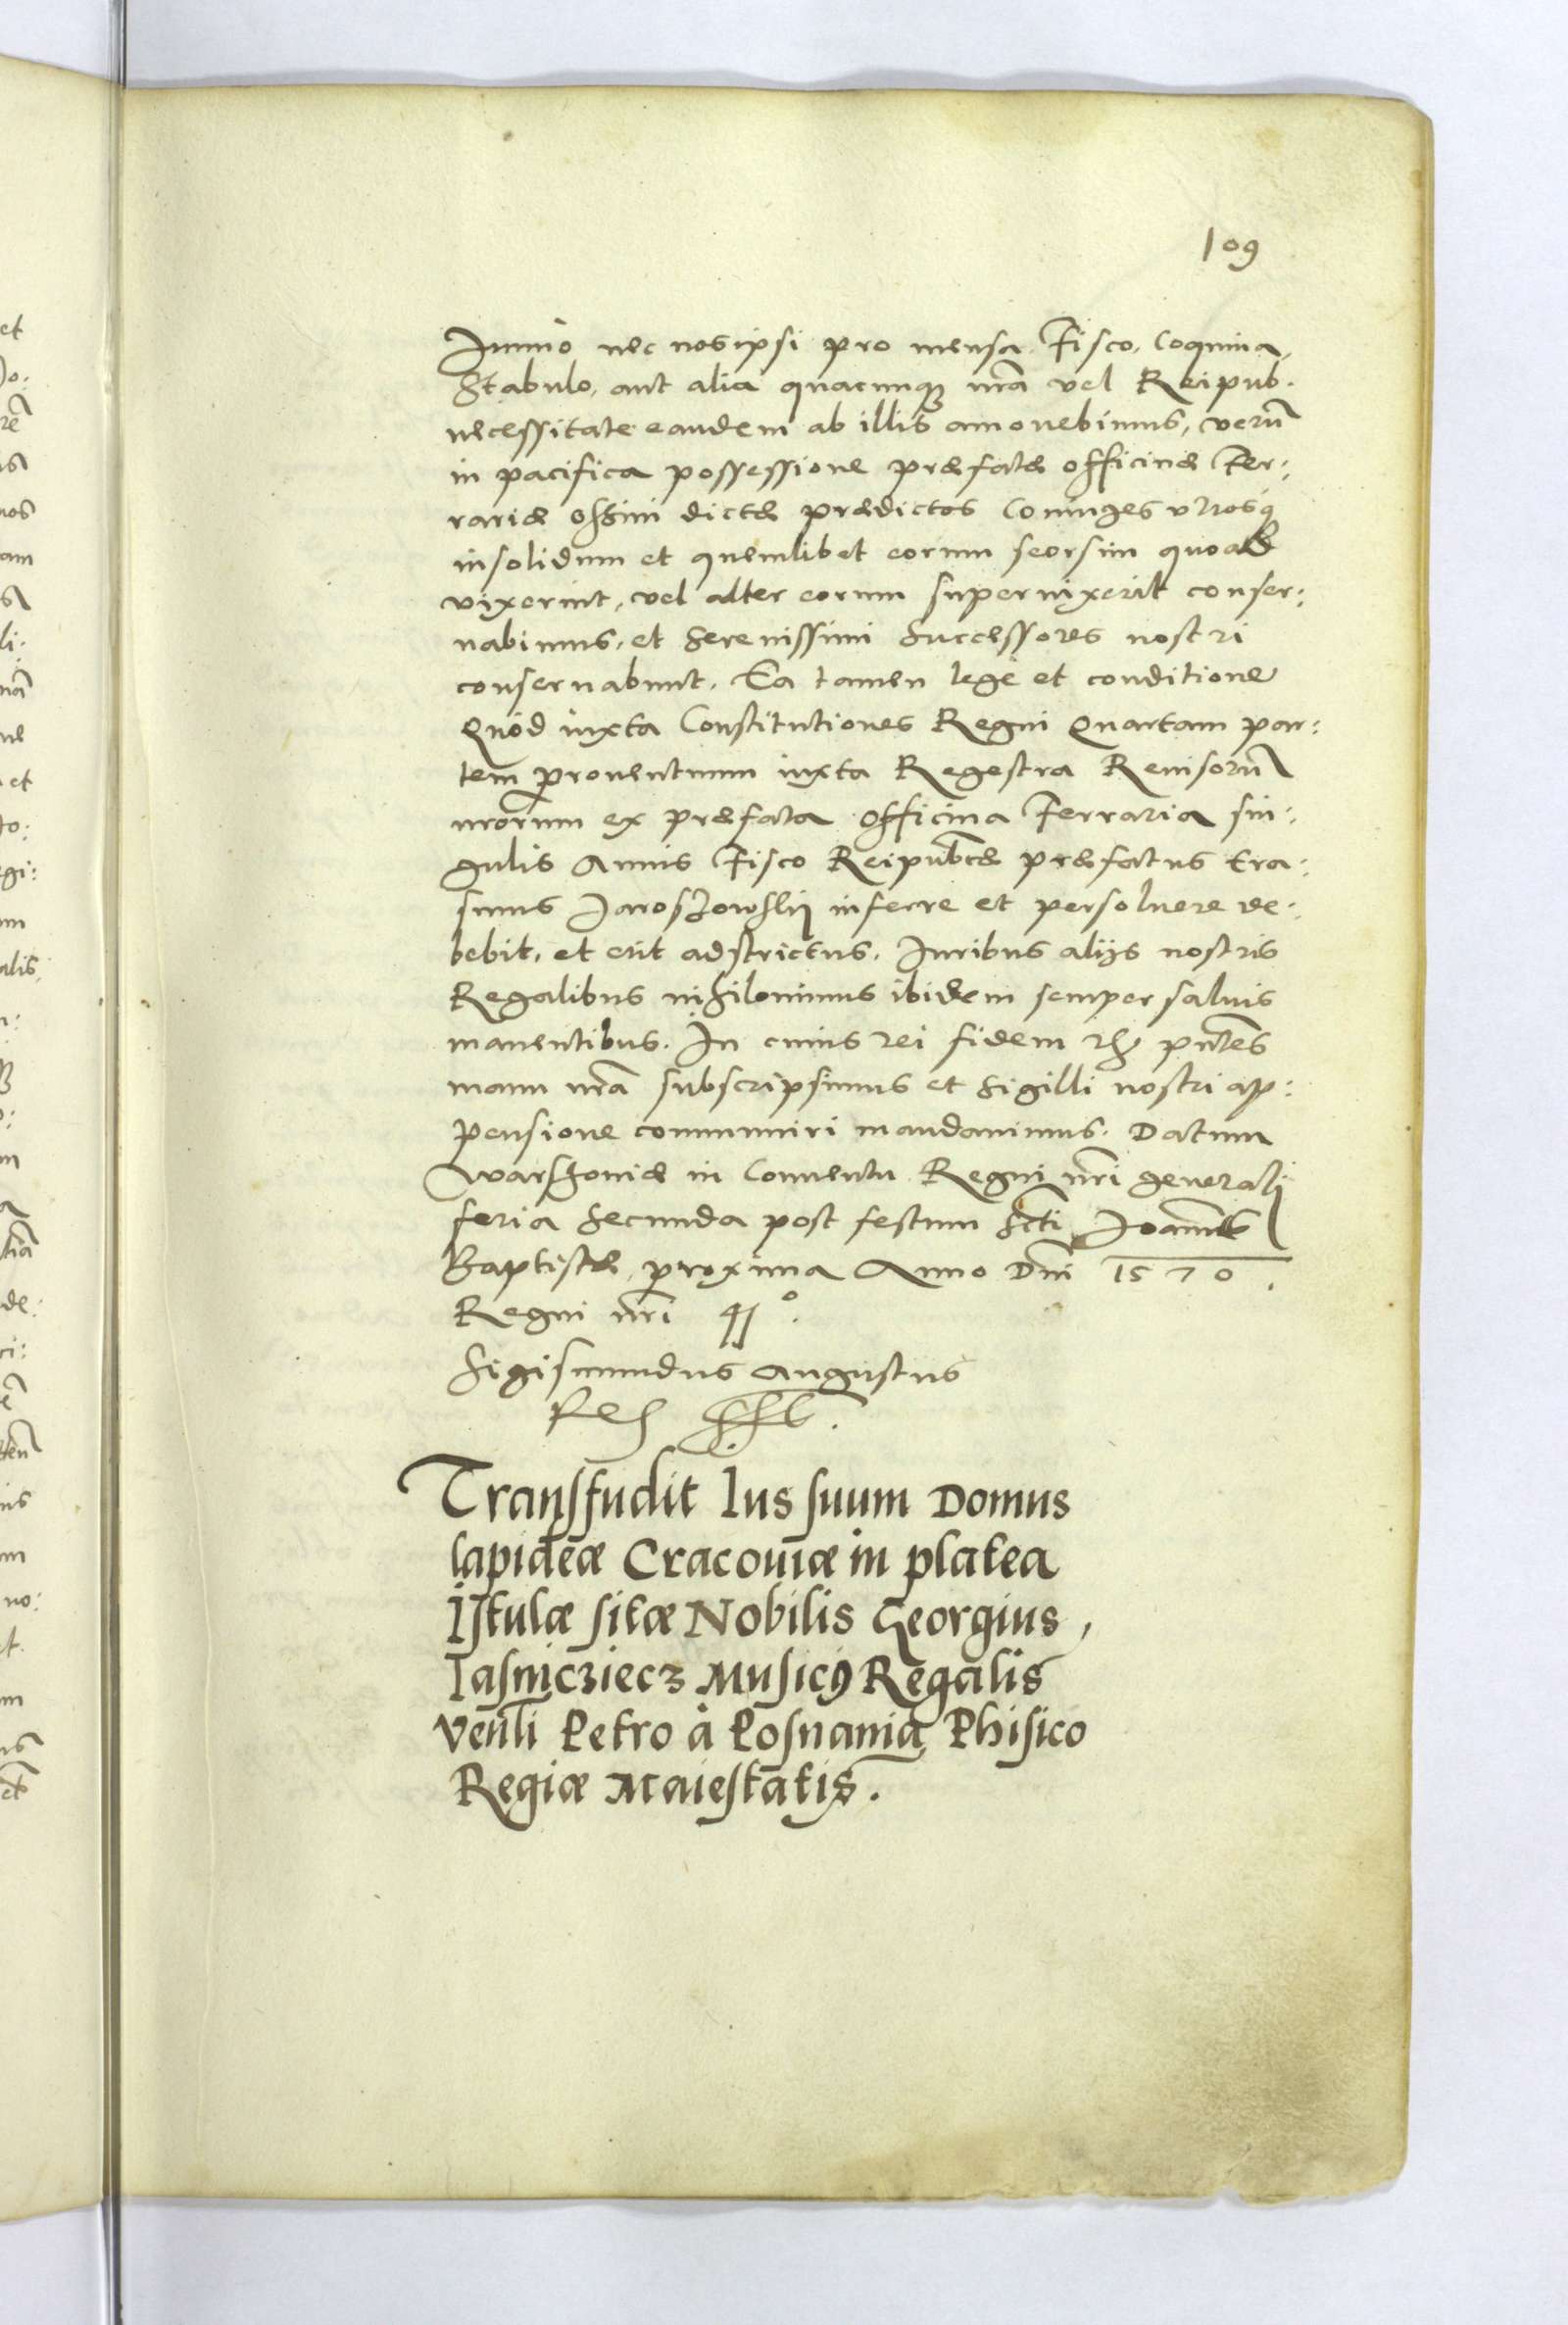 109
Immo nec nosipsi pro mensa, Fisco, Coquina,
Stabulo, aut alia quacunq3 nrã vel Reipub.
necessitate eandem ab illis amouebimus, verũ
in pacifica possessione præfatæ officinæ Fer:
rariæ Ossini dictæ prædictos Coniuges vtrosq3
insolidum et quemlibet eorum seorsim quoad
vixerint, vel alter eorum superuixerit conser:
uabimus, et Serenissimi Successores nostri
conseruabunt. Ea tamen lege et conditione
Quòd iuxta Constitutiones Regni Quartam par:
tem prouentuum iuxta Regestra Reuisorũ
nrorum ex præfata officina Ferraria sin:
gulis Annis Fisco Reipub̃cæ præfatus Era:
smus Jaroszowsky inferre et persoluere de:
bebit, et erit adstrictus. Iuribus alijs nostris
Regalibus nihilominus ibidem semper saluis
manentibus. In cuius rei fidem rc. pñtes
manu nrã subscripsimus et Sigilli nostri ap:
pensione communiri mandauimus. Datum
Warszouiæ in Conuentu Regni nrĩ generali
feria Secunda post festum Scti Joannis
Baptistæ, proxima Anno Dni 1570.
Regni nrĩ 41°.
Sigismundus Augustus
Rex sst.
Transfudit Ius suum Domus
lapideæ Cracouiæ in platea
Istulæ sitæ Nobilis Georgius,
Iasnicziecz Musicꝰ Regalis
Venli Petro à Posnania Phisico
Regiæ Maiestatis.
et